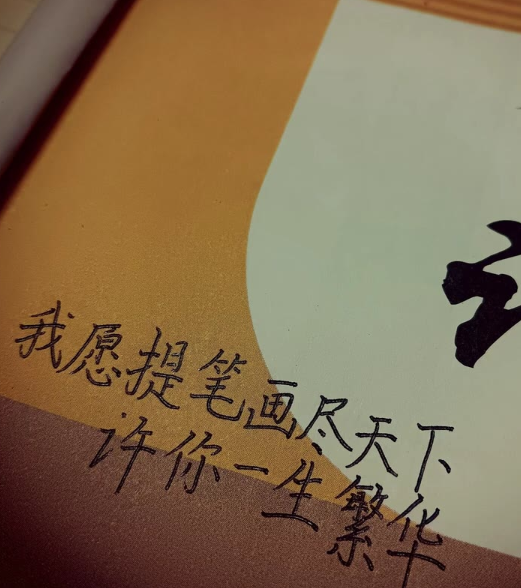 我愿提笔画尽天下
许你一生繁华